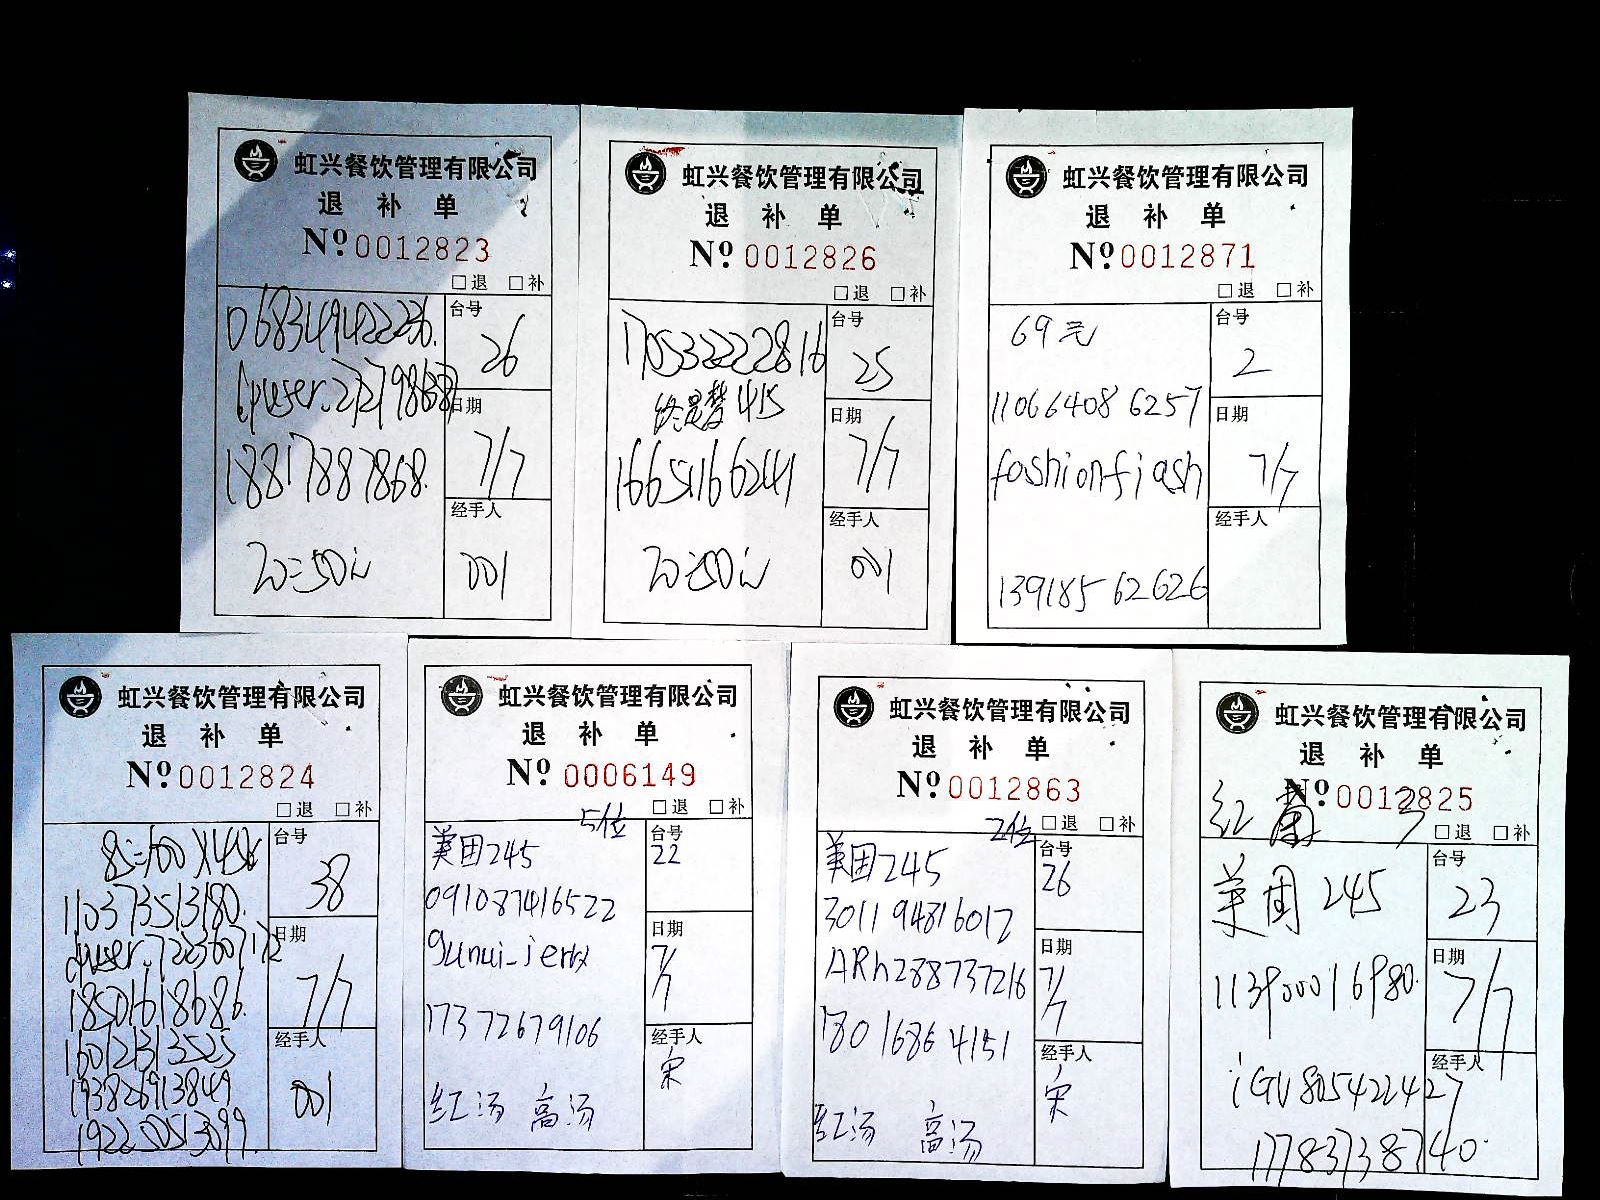 虹兴餐饮管理有限公司
退 补 单
Nº 0012823
□退 □补
068349422236.
台号
26
日期
7/7
18817887868.
经手人
001
虹兴餐饮管理有限公司
退 补 单
Nº 0012826
□退 □补
170532222816
台号
25
终是梦415
日期
7/7
16651166241
经手人
001
虹兴餐饮管理有限公司
退 补 单
Nº 0012871
□退 □补
69元
台号
2
110664086257
日期
7/7
fashionfiash
经手人
13918562626
虹兴餐饮管理有限公司
退 补 单
Nº 0012824
□退 □补
台号
38
110373513180.
日期
7/7
18501618686.
经手人
001
193826913849
虹兴餐饮管理有限公司
退 补 单
Nº 0006149
5位 □退 □补
美团245
台号
22
091087416522
日期
7/7
17372679106
经手人
宋
红汤 高汤
虹兴餐饮管理有限公司
退 补 单
Nº 0012863
2位 □退 □补
美团245
台号
26
301194816012
日期
7/7
ARh288737216
18016864151
经手人
宋
红汤 高汤
虹兴餐饮管理有限公司
退 补 单
Nº 0012825
红 菌 3
□退 □补
美团 245
台号
23
日期
7/7
113900016980.
经手人
iGV805422427
17783738740.